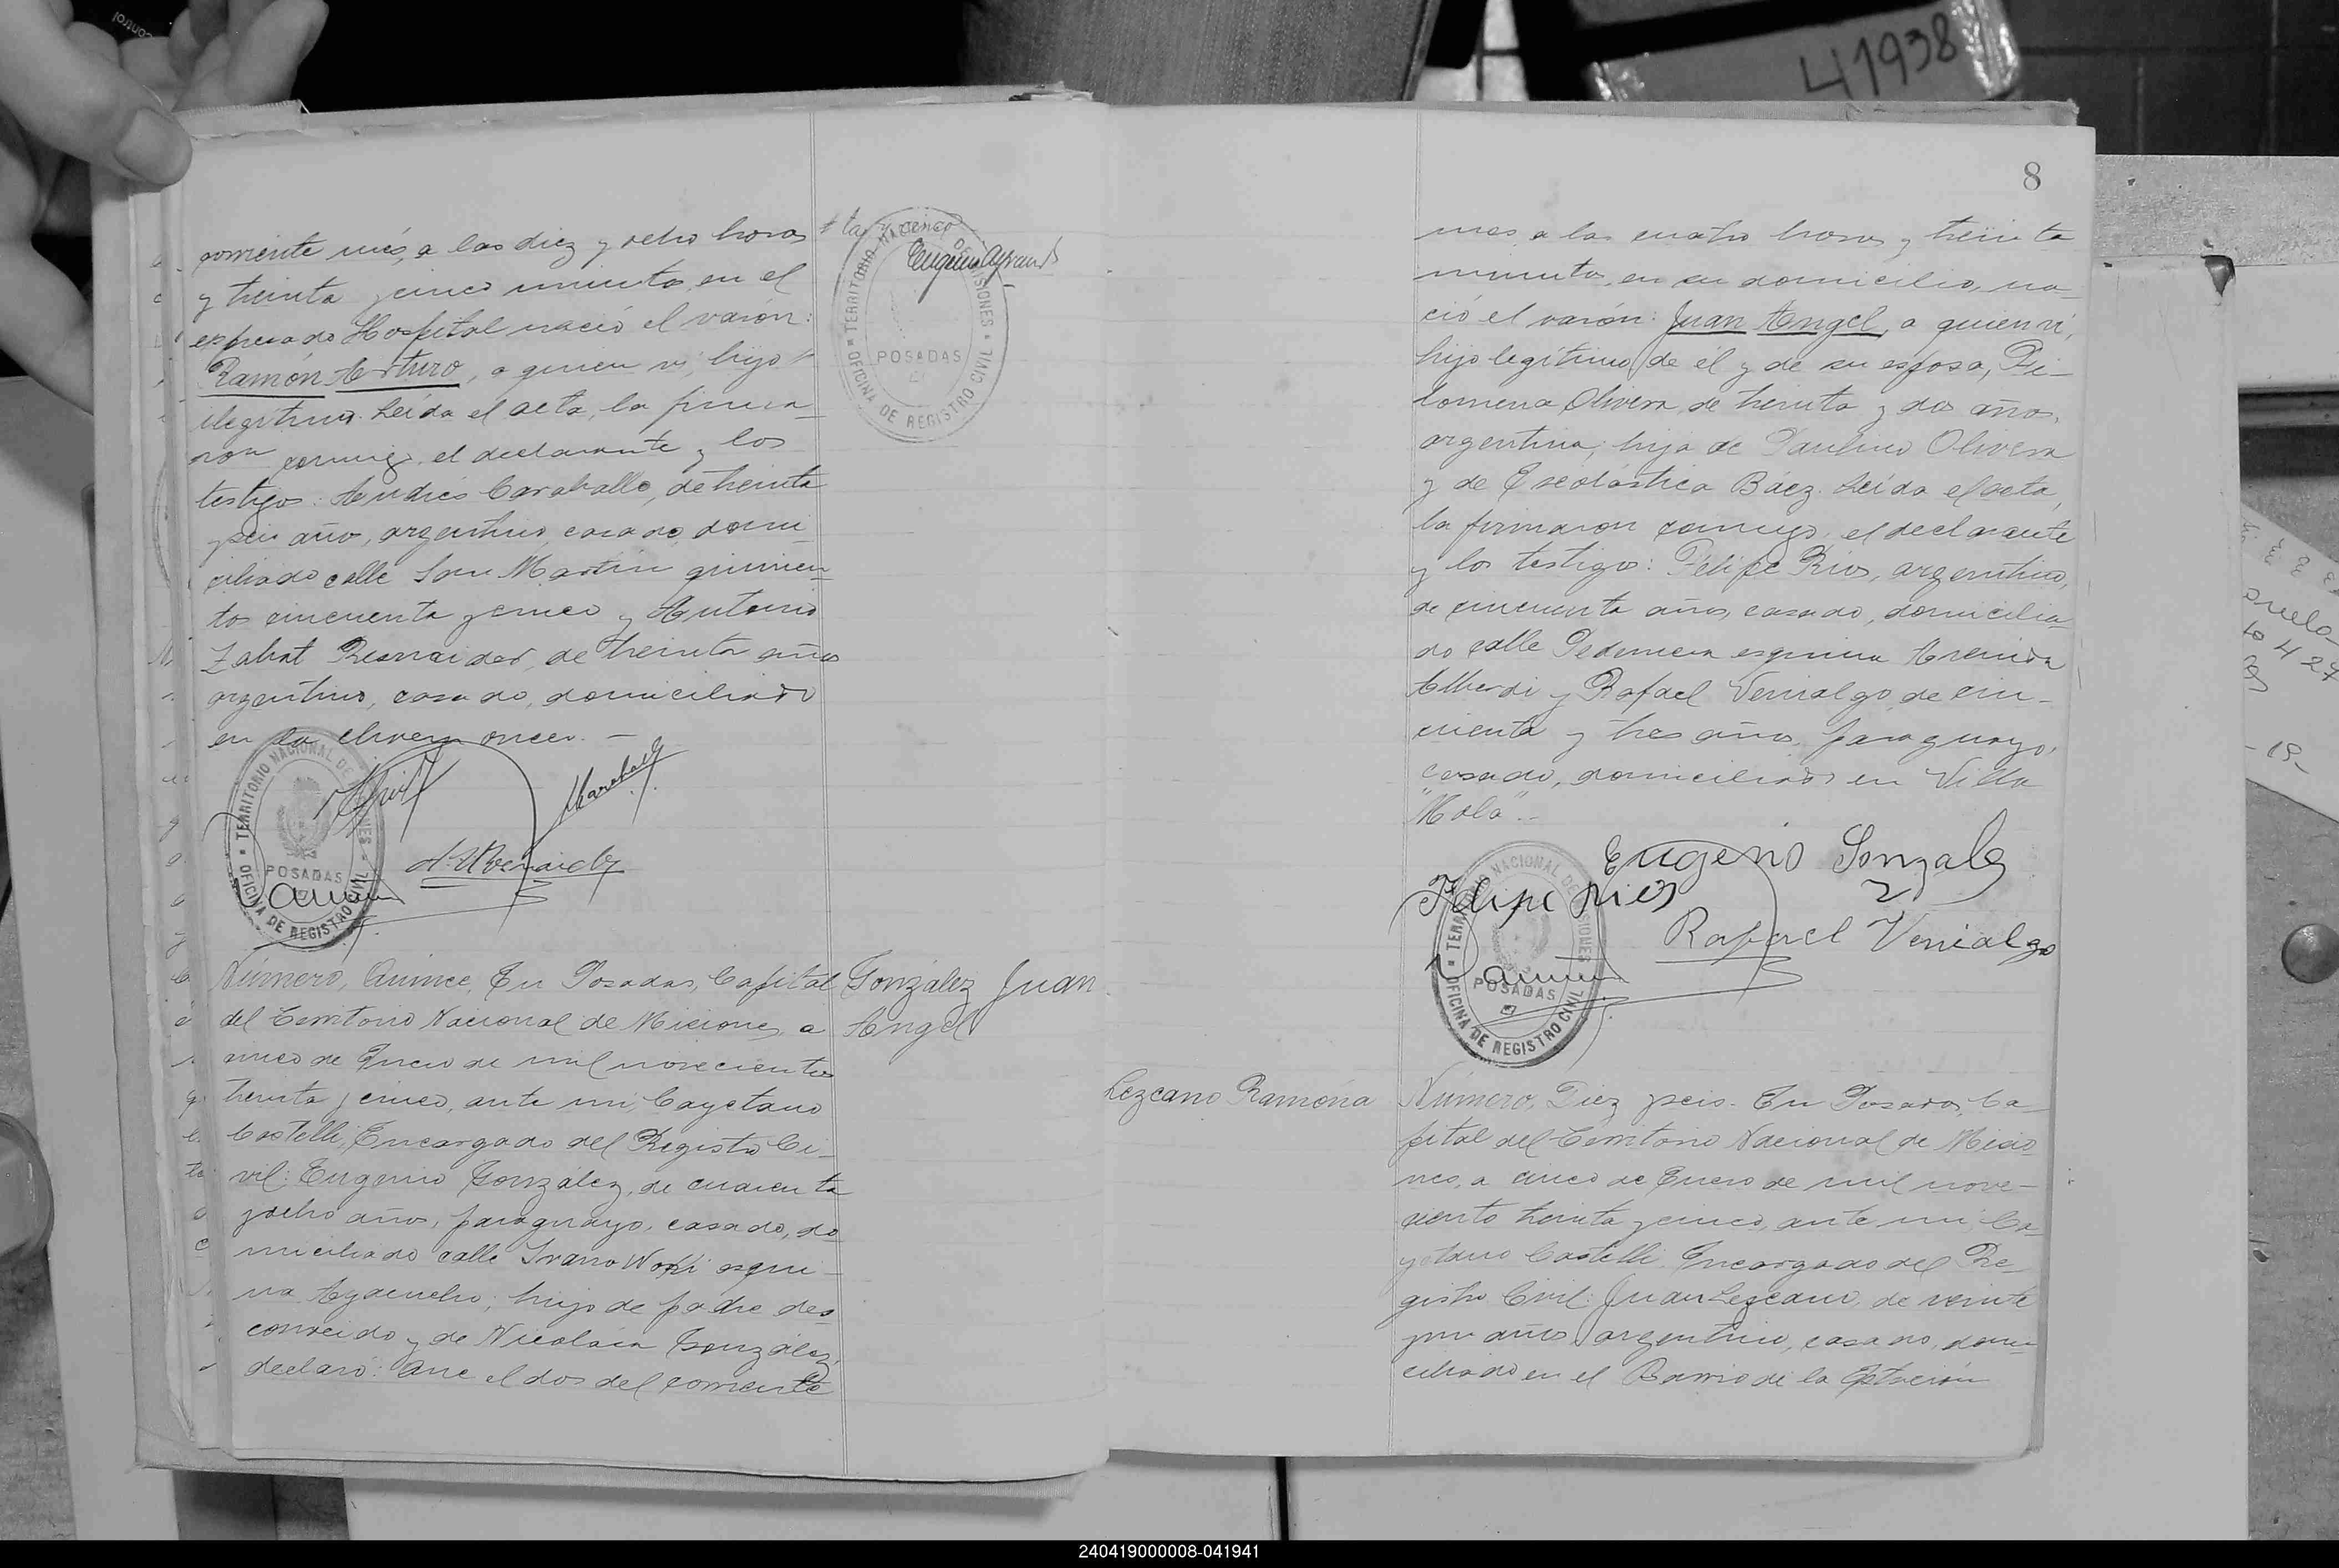 control
41938
8
corriente mes, a las diez y ocho horas
y treinta y cinco minutos, en el
expresado Hospital nació el varón:
Ramón Arturo, a quien ví, hijo
ilegítimo. Leída el acta, la firma-
ron conmigo, el declarante y los
testigos: Andrés Caraballo, de treinta
y seis años, argentino, casado, domi-
ciliado calle San Martín quinien-
tos cincuenta y cinco y Antonio
Zabat Resnaider, de treinta años
argentino, casado, domiciliado
en la chacra once. -
ta y cinco
TERRITORIO NACIONAL DE MISIONES
POSADAS
OFICINA DE REGISTRO CIVIL
TERRITORIO NACIONAL DE MISIONES
POSADAS
OFICINA DE REGISTRO CIVIL
González Juan
Angel
Número, Quince, En Posadas, Capital
del Territorio Nacional de Misiones, a
cinco de Enero de mil novecientos
treinta y cinco, ante mi, Cayetano
Castelli, Encargado del Registro Ci-
vil: Eugenio González, de cuarenta
y ocho años, paraguayo, casado, do
miciliado calle IvanoWoski esqui-
na Ayacucho; hijo de padre des
conocido y de Nicolasa González,
declaró: Que el dos del corriente
mes, a las cuatro horas y treinta
minutos, en su domicilio, na-
ció el varón: Juan Angel, a quien ví,
hijo legítimo de él y de su esposa, Fi-
lomena Olivera, de treinta y dos años,
argentina; hija de Paulino Olivera
y de Escolástica Báez. Leída el acta,
la firmaron conmigo, el declarante
y los testigos: Felipe Rios, argentino,
de cincuenta años, casado, domicilia-
do calle Pedernera esquina Avenida
Alberdi y Rafael Venialgo, de cin-
cuenta y tres años, paraguayo,
casado, domiciliado en Villa
"Mola".-
Eugenio Gonzalez
Felipe Rios
Rafael Venialgo
TERRITORIO NACIONAL DE MISIONES
POSADAS
OFICINA DE REGISTRO CIVIL
Lezcano Ramona
Número, Diez y seis. En Posadas, Ca-
pital del Territorio Nacional de Misio
nes, a cinco de Enero de mil nove-
cientos treinta y cinco, ante mi, Ca-
yetano Castelli, Encargado del Re-
gistro Civil: Juan Lezcano, de veinte
y un años, argentino, casado, domi-
ciliado en el Barrio de la Estación
240419000008-041941